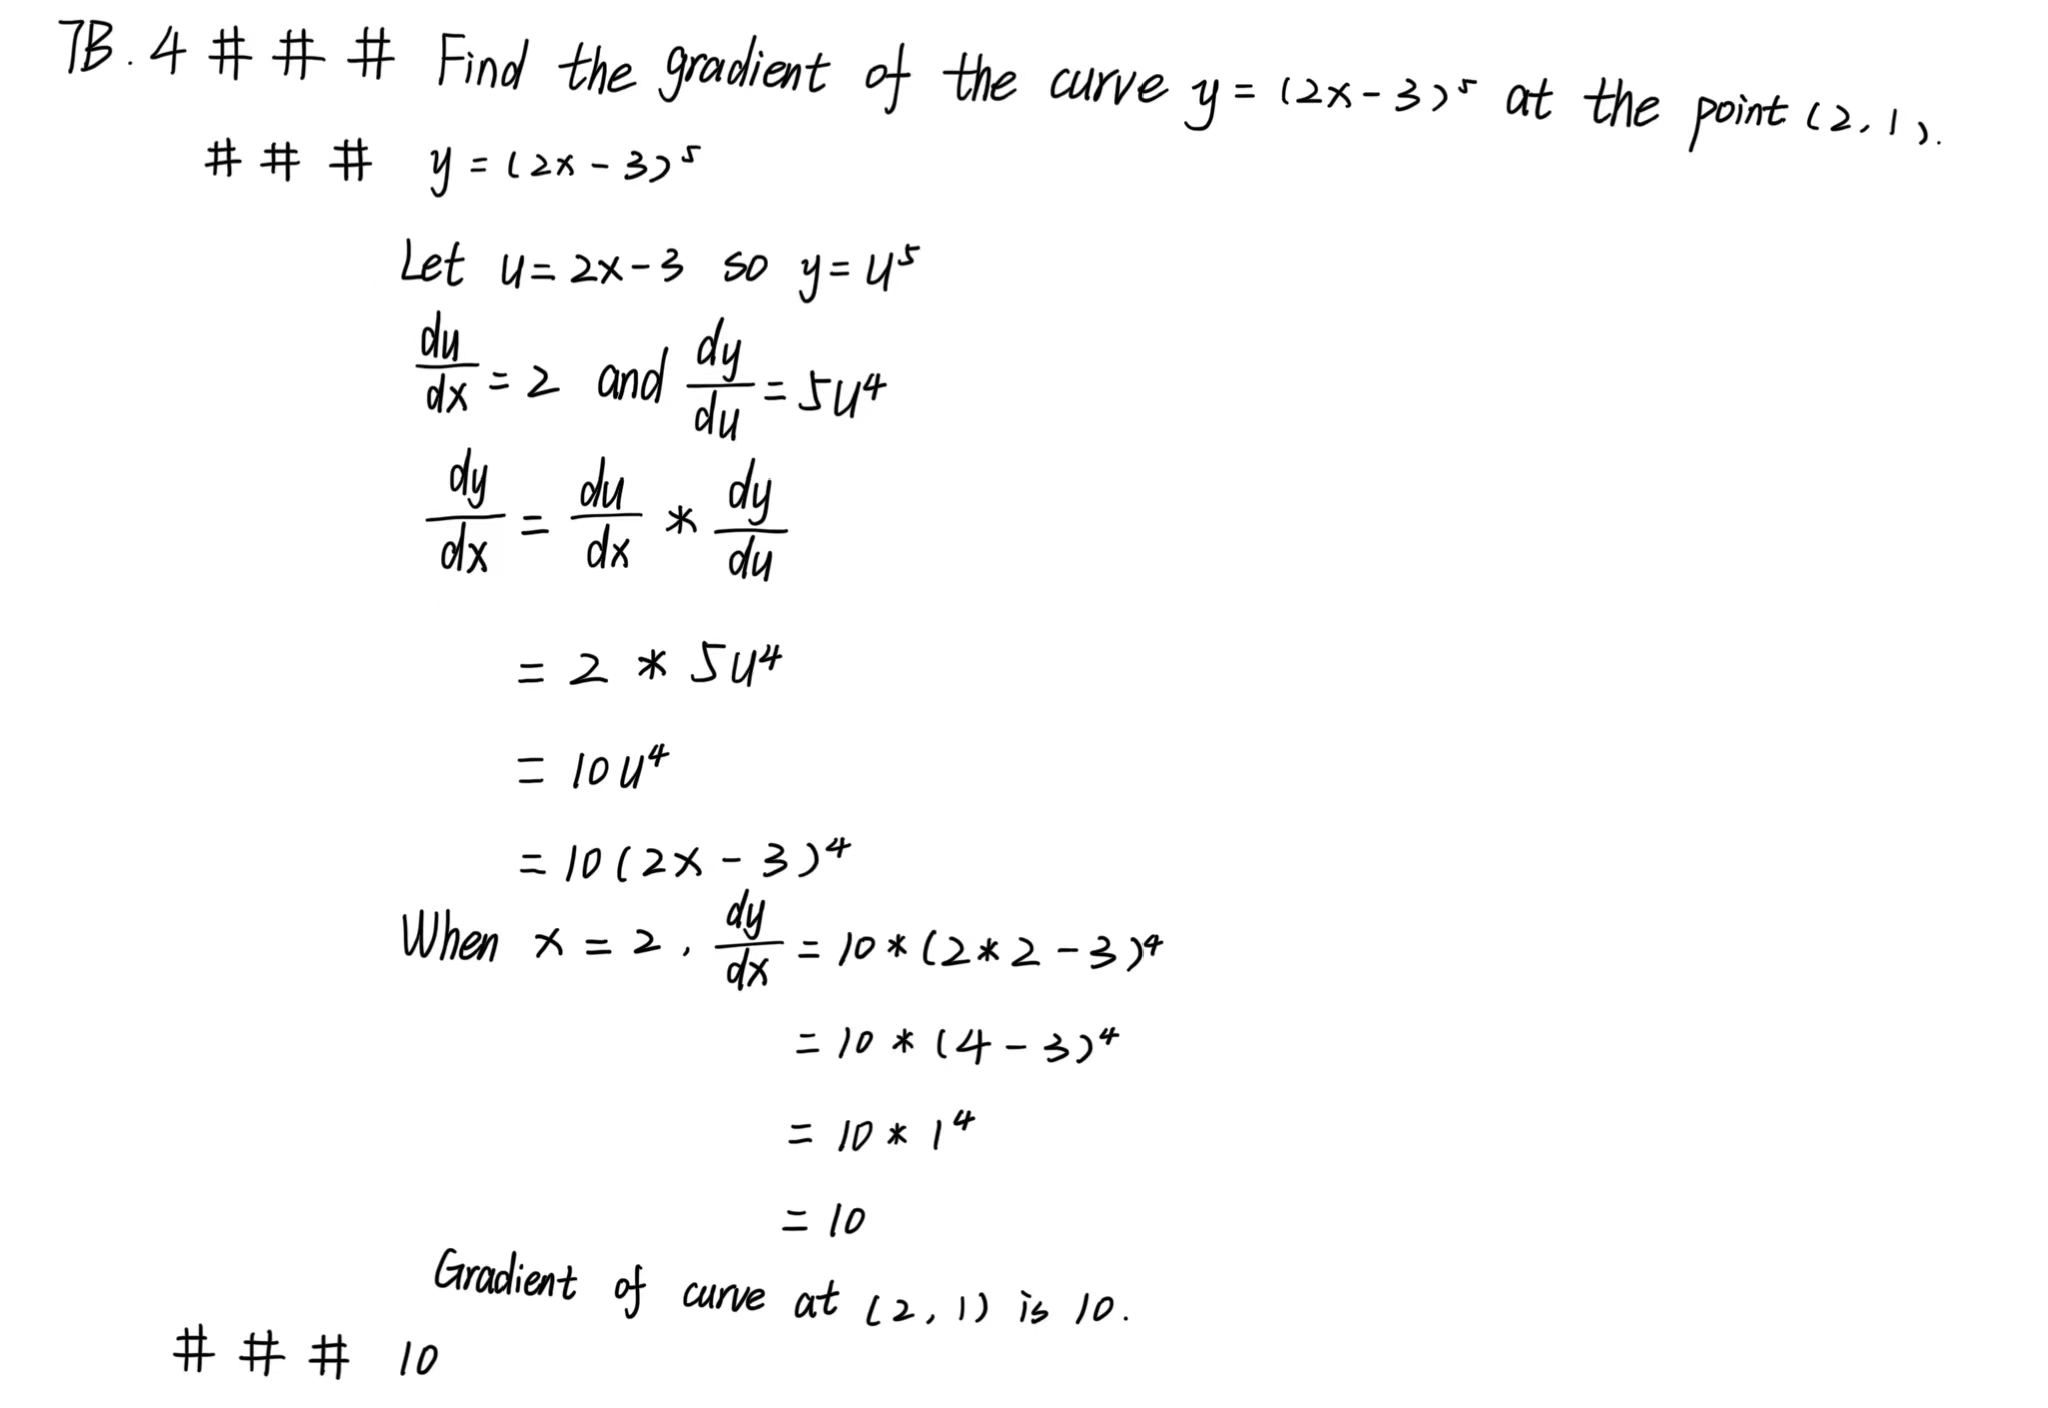 7B.4 # # # Find the gradient of the curve y = (2x - 3)⁵ at the point (2, 1).
# # # y = (2x - 3)⁵
Let u = 2x - 3 so y = u⁵
du/dx = 2 and dy/du = 5u⁴
dy/dx = du/dx * dy/du
= 2 * 5u⁴
= 10u⁴
= 10(2x - 3)⁴
When x = 2, dy/dx = 10 * (2 * 2 - 3)⁴
= 10 * (4 - 3)⁴
= 10 * 1⁴
= 10
Gradient of curve at (2, 1) is 10.
# # # 10